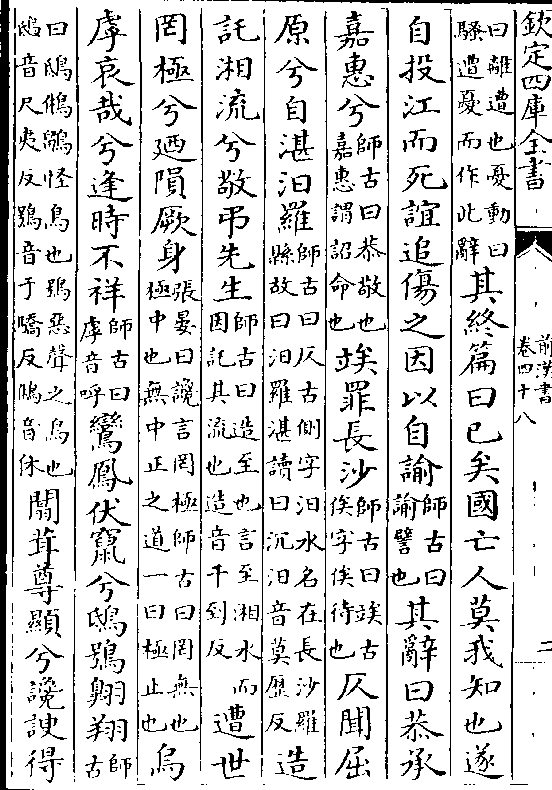 欽定四庫全書
前漢書
卷四十八
二
曰離遭也憂動曰
騷遭憂而作此辭
其終篇曰已矣國亡人莫我知也遂
自投江而死誼追傷之因以自諭
師古曰
諭譬也
其辭曰恭承
嘉惠兮
師古曰恭敬也
嘉惠謂詔命也
竢罪長沙
師古曰竢古
俟字俟待也
仄聞屈
原兮自湛汨羅
師古曰仄古側字汨水名在長沙羅
縣故曰汨羅湛讀曰沉汨音莫歷反
造
託湘流兮敬弔先生
師古曰造至也言至湘水而
因託其流也造音千到反
遭世
罔極兮廼隕厥身
張晏曰讒言罔極師古曰罔無也
極中也無中正之道一曰極止也
烏
虖哀哉兮逢時不祥
師古曰
虖音呼
鸞鳳伏竄兮鴟鴞翺翔
師
古
曰鴟鵂鶹怪鳥也鴞惡聲之鳥也
鴟音尺夷反鴞音于驕反鵂音休
闒茸尊顯兮讒諛得